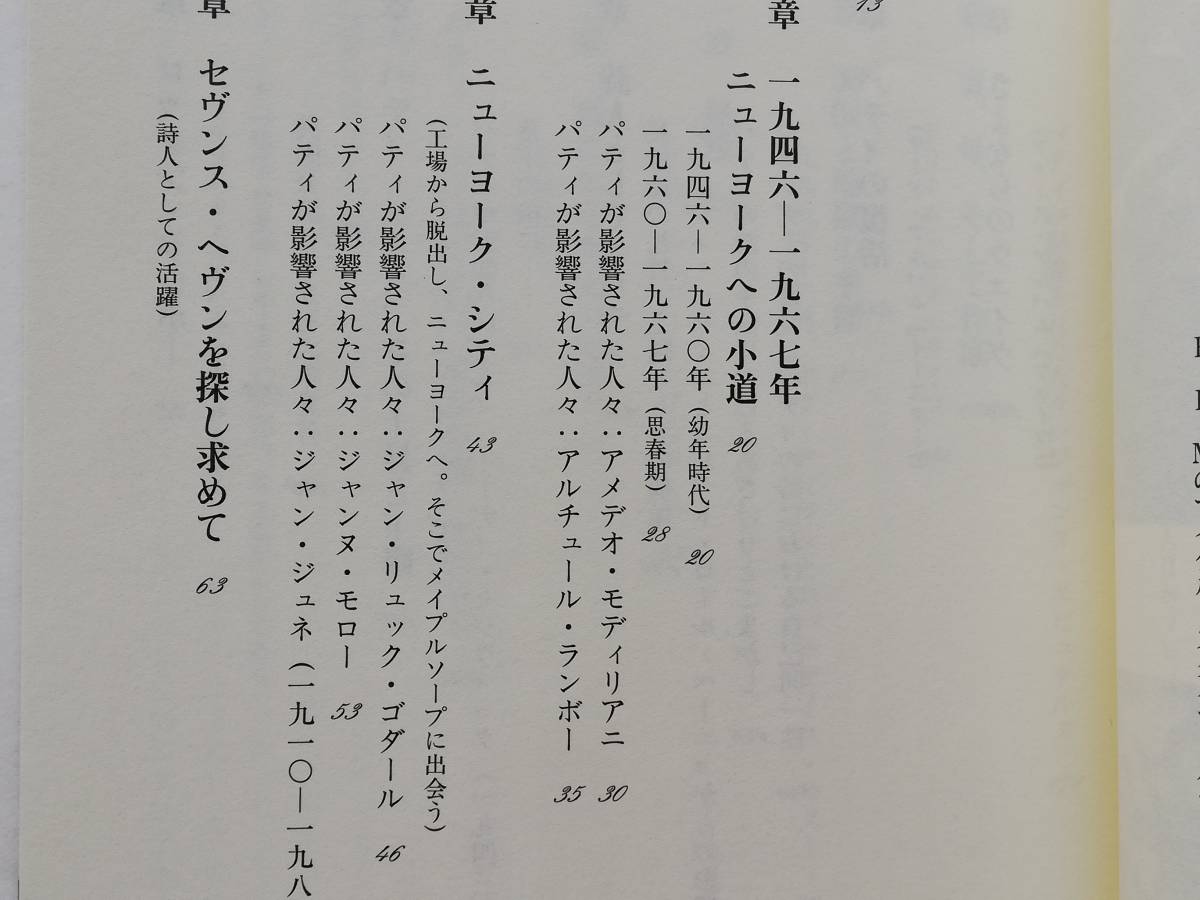 13
章 一九四六—一九六七年
ニューヨークへの小道 20
一九四六—一九六〇年(幼年時代) 20
一九六〇—一九六七年(思春期) 28
パティが影響された人々:アメデオ・モディリアニ 30
パティが影響された人々:アルチュール・ランボー 35
章 ニューヨーク・シティ 43
(工場から脱出し、ニューヨークへ。そこでメイプルソープに出会う)
パティが影響された人々:ジャン・リュック・ゴダール 46
パティが影響された人々:ジャンヌ・モロー 53
パティが影響された人々:ジャン・ジュネ(一九一〇—一九八
章 セヴンス・ヘヴンを探し求めて 63
(詩人としての活躍)